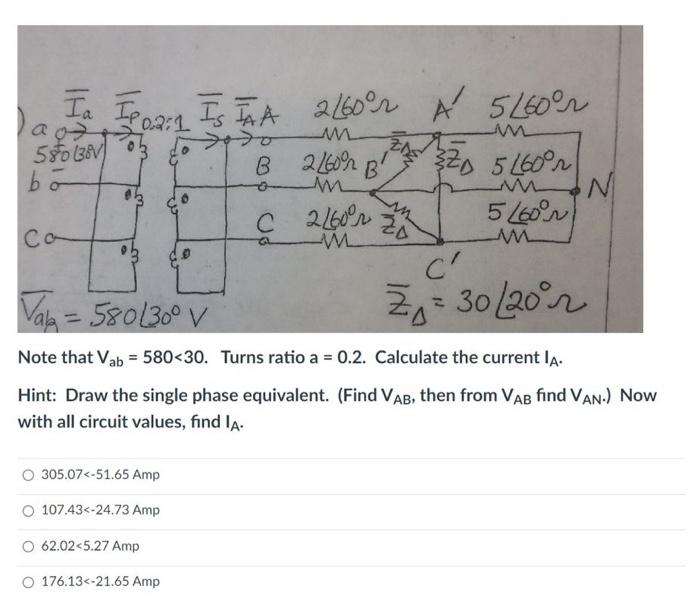 Ia Ip 0.2:1 Is IA A 2∠60°Ω A' 5∠60°Ω
a
580∠30V ZΔ ZΔ 5∠60°Ω
b B 2∠60°Ω B' N
C 2∠60°Ω ZΔ 5∠60°Ω
C
C'
Vab = 580∠30° V ZΔ = 30∠20°Ω
Note that Vab = 580<30. Turns ratio a = 0.2. Calculate the current IA.
Hint: Draw the single phase equivalent. (Find VAB, then from VAB find VAN.) Now
with all circuit values, find IA.
305.07<-51.65 Amp
107.43<-24.73 Amp
62.02<5.27 Amp
176.13<-21.65 Amp